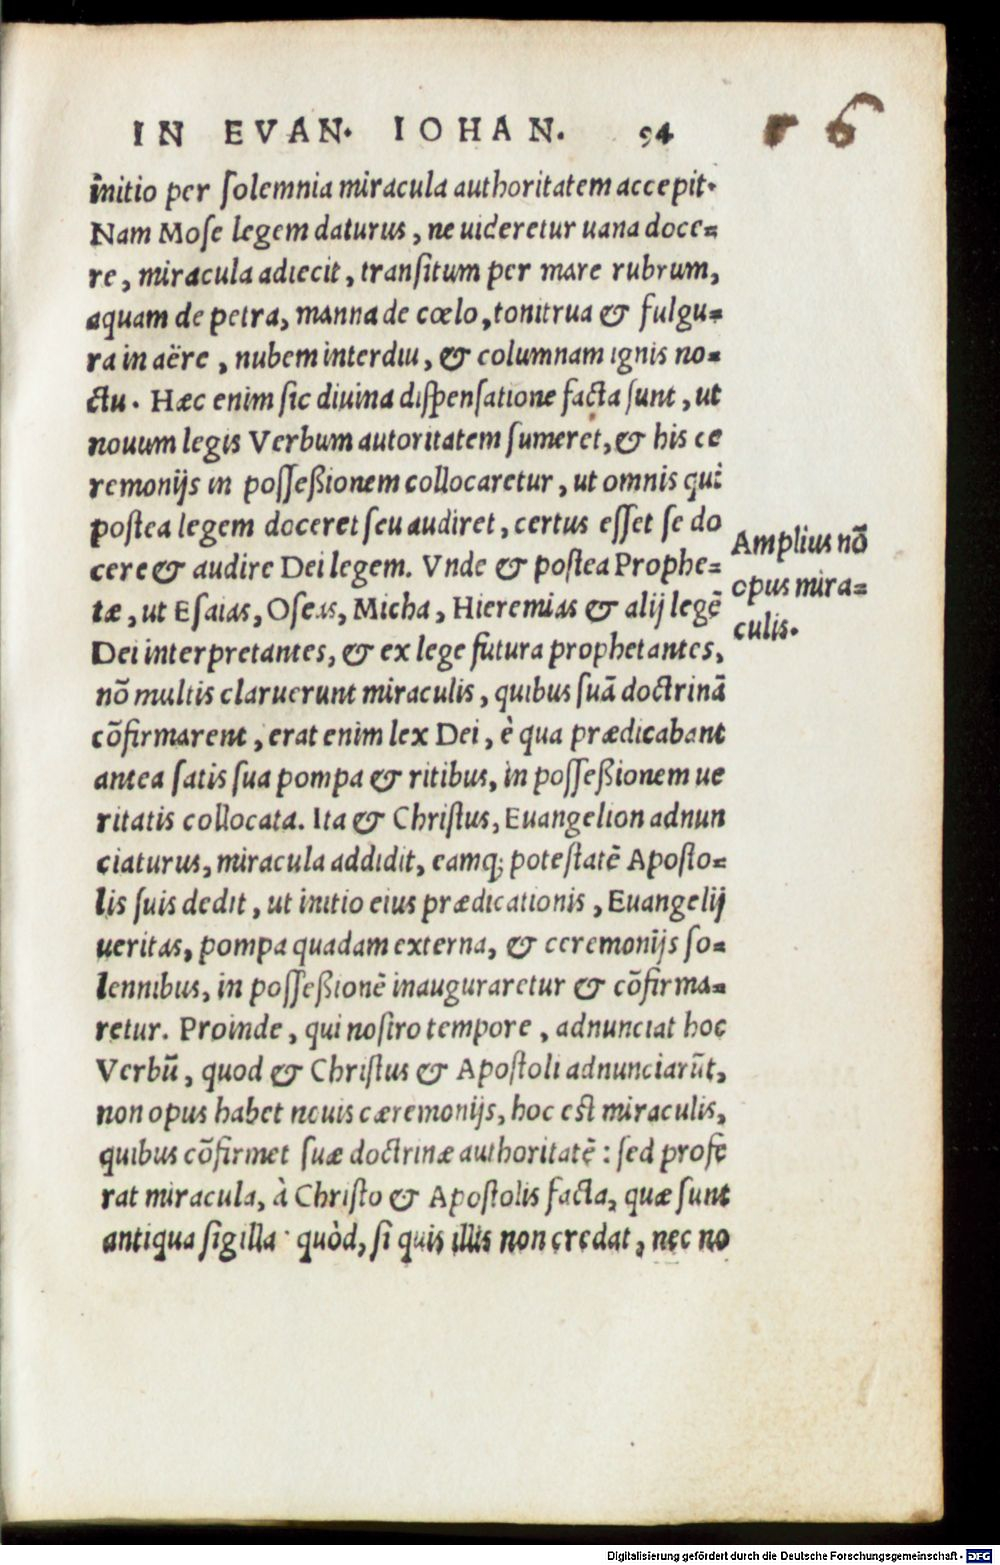 IN EVAN. IOHAN. 94
initio per ſolemnia miracula authoritatem accepit.
Nam Moſe legem daturus, ne uideretur uana doce=
re, miracula adiecit, tranſitum per mare rubrum,
aquam de petra, manna de cœlo, tonitrua & fulgu=
ra in aëre, nubem interdiu, & columnam ignis no=
ctu. Hæc enim ſic diuina diſpenſatione facta ſunt, ut
nouum legis Verbum autoritatem ſumeret, & his ce
remonijs in poſſeßionem collocaretur, ut omnis qui
poſtea legem doceret ſeu audiret, certus eſſet ſe do
cere & audire Dei legem. Vnde & poſtea Prophe=
tæ, ut Eſaias, Oſeas, Micha, Hieremias & alij legẽ
Dei interpretantes, & ex lege futura prophetantes,
nõ multis claruerunt miraculis, quibus ſuã doctrinã
cõfirmarent, erat enim lex Dei, è qua prædicabant
antea ſatis ſua pompa & ritibus, in poſſeßionem ue
ritatis collocata. Ita & Chriſtus, Euangelion adnun
ciaturus, miracula addidit, eamq; poteſtatẽ Apoſto=
lis ſuis dedit, ut initio eius prædicationis, Euangelij
ueritas, pompa quadam externa, & ceremonijs ſo=
lennibus, in poſſeßionẽ inauguraretur & cõfirma=
retur. Proinde, qui noſtro tempore, adnunciat hoc
Verbũ, quod & Chriſtus & Apoſtoli adnunciarũt,
non opus habet nouis cæremonijs, hoc eſt miraculis,
quibus cõfirmet ſuæ doctrinæ authoritatẽ: ſed profe
rat miracula, à Chriſto & Apoſtolis facta, quæ ſunt
antiqua ſigilla· quòd, ſi quis illis non credat, nec no
Amplius nõ
opus mira=
culis.
Digitalisierung gefördert durch die Deutsche Forschungsgemeinschaft - DFG